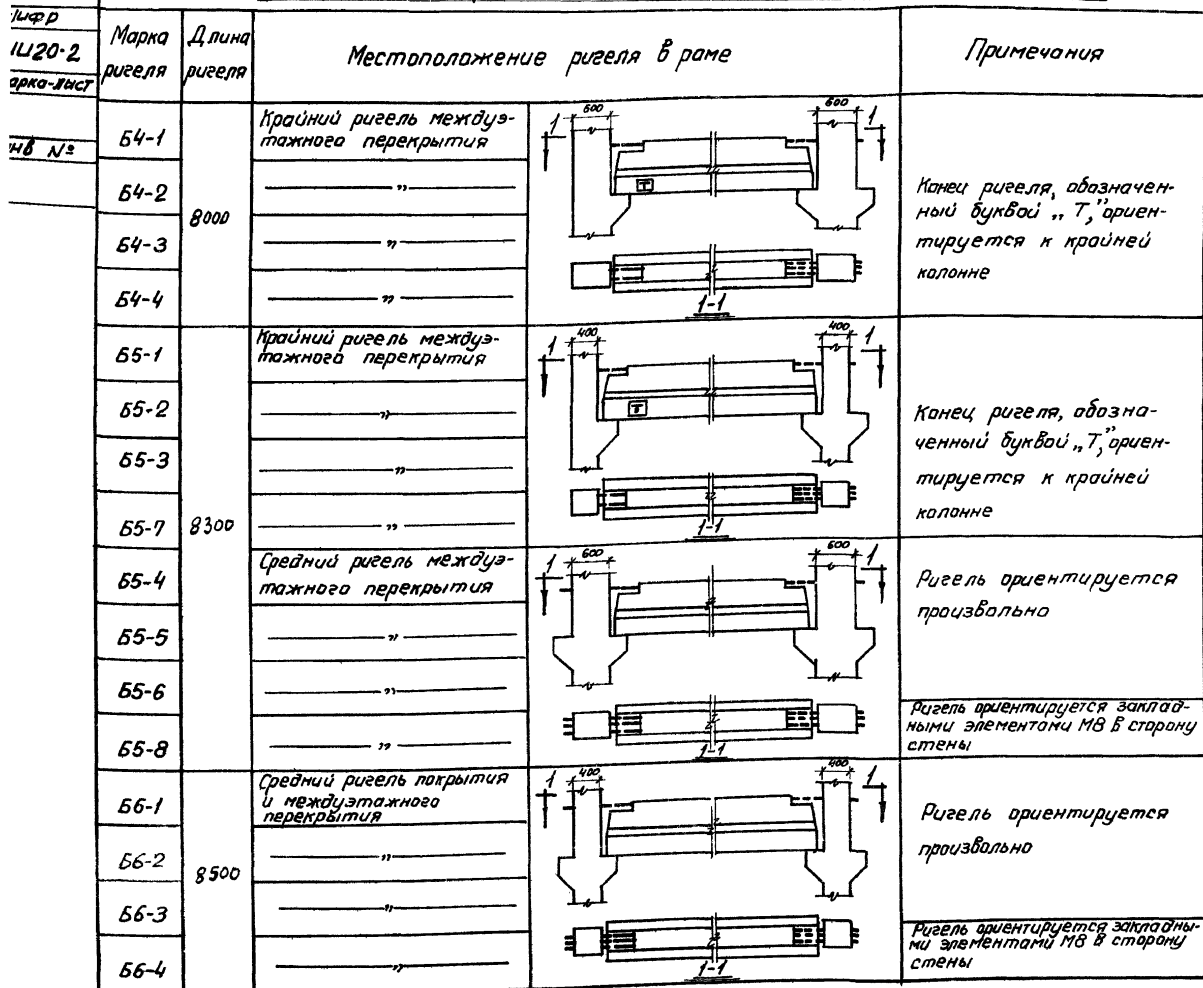 ИИ20-2
Марка
ригеля
Длина
ригеля
Местоположение ригеля в раме
Примечания
инв №
Б4-1
Б4-2
Б4-3
Б4-4
8000
Крайний ригель междуэ-
тажного перекрытия
"
"
"
600
600
1
1
Т
1-1
Конец ригеля, обозначен-
ный буквой „Т," ориен-
тируется к крайней
колонне
Б5-1
Б5-2
Б5-3
Б5-7
8300
Крайний ригель междуэ-
тажного перекрытия
"
"
"
400
400
1
1
Т
1-1
Конец ригеля, обозна-
ченный буквой „Т," ориен-
тируется к крайней
колонне
Б5-4
Б5-5
Б5-6
Б5-8
Средний ригель междуэ-
тажного перекрытия
"
"
"
600
600
1
1
1-1
Ригель ориентируется
произвольно
Ригель ориентируется заклад-
ными элементами М8 в сторону
стены
Б6-1
Б6-2
Б6-3
Б6-4
8500
Средний ригель покрытия
и междуэтажного
перекрытия
"
"
"
400
400
1
1
1-1
Ригель ориентируется
произвольно
Ригель ориентируется закладны-
ми элементами М8 в сторону
стены